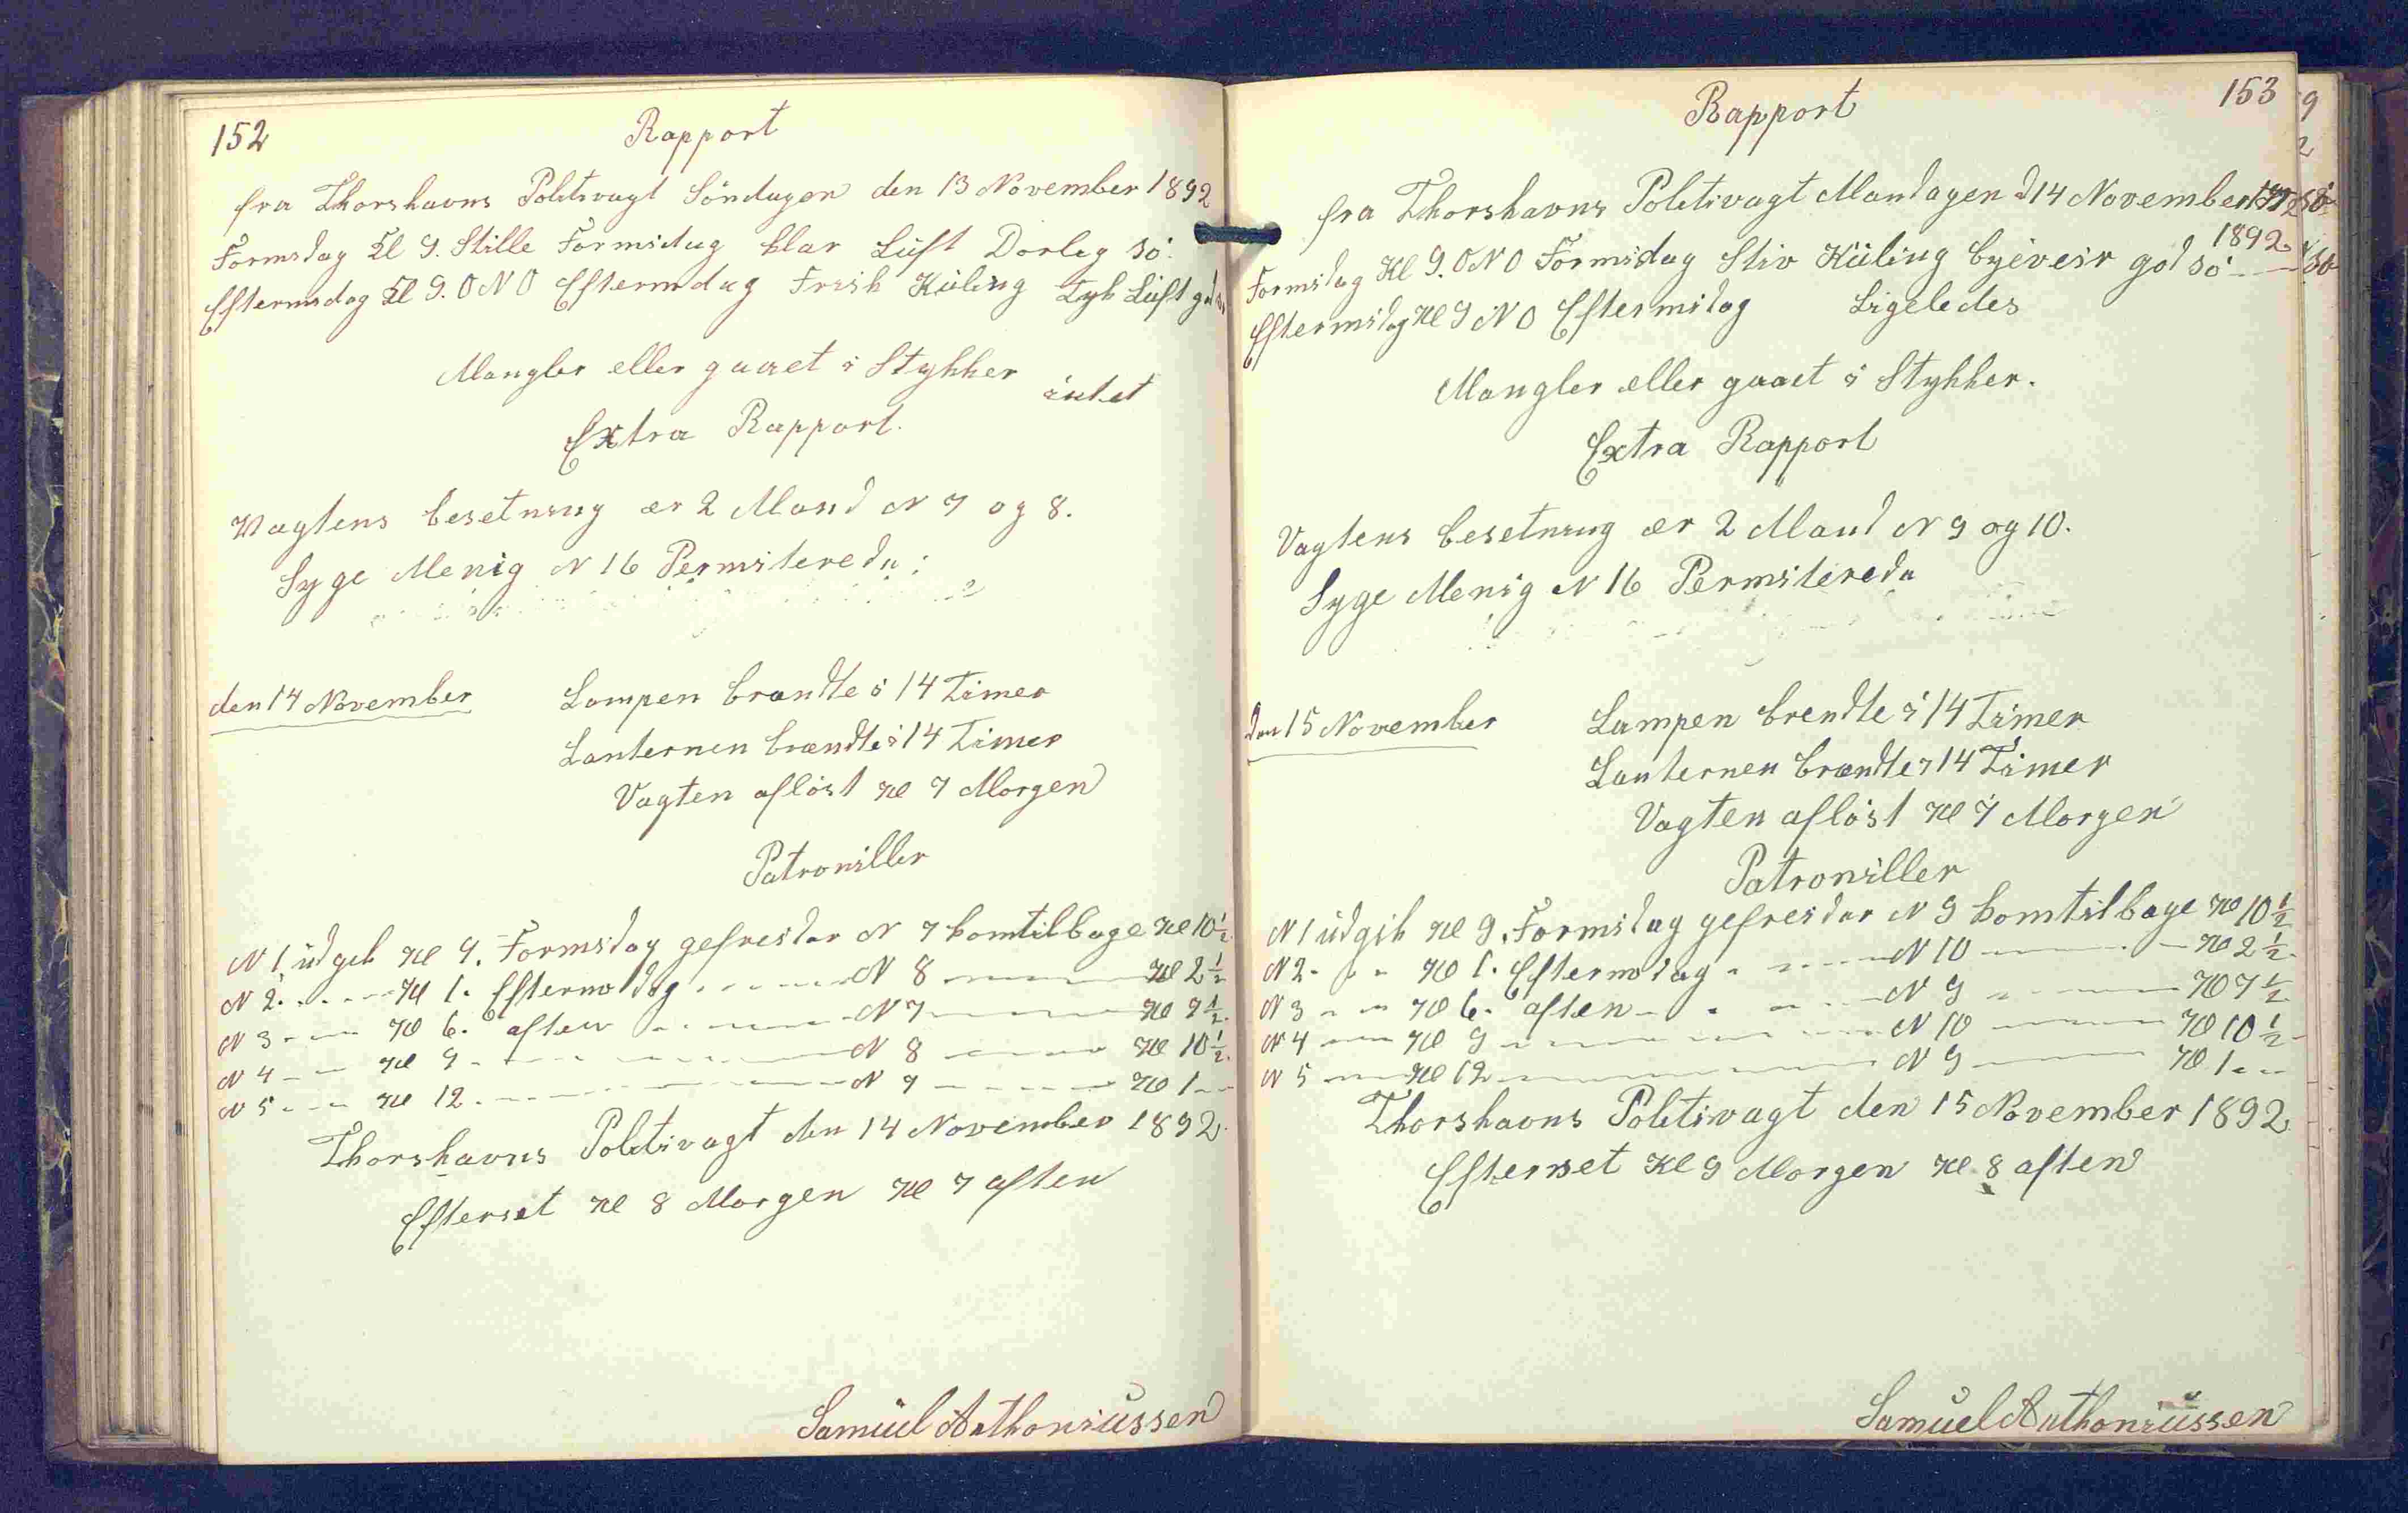 152
Rapport
fra Thorshavns Politivagt Söndagen den 13 November 1892
Formsdag Kl 9. Stille Formidag klar Luft Dorleg Sö.
Eftermsdag Kl 9. ONO Eftermdag Frisk Küling Tyk Lüft god
Mangler eller gaaet i Stykker
intet
Extra Rapport.
Vagtens besetning er 2 Mand N 7 og 8.
Syge Menig N 16 Permiterede:
den 14 November Lampen brændte i 14 Timer
Lanternen brændte i 14 Timer
Vagten aflöst Kl 7 Morgen
Patroniller
N 1 üdgik Kl 9. Formidag gefreidar N 7 komtilbage Kl 10½
N 2. . . - - Kl 1. Eftermidag . . . - - N 8 - - - Kl 2½
N 3 - - - Kl 6. aften - - - - N 7 - - - Kl 7½
N 4 - - Kl 9 - - - - - N 8 - - - Kl 10½
N 5 - - - Kl 12. - - - - - N 7 - - - - Kl 1 - -
Thorshavns Politivagt den 14 November 1892.
Efterset Kl 8 Morgen Kl 7 aften
Samüel Anthoniüssen
153
Rapport
fra Thorshavns Politivagt Mandagen d 14 November
1892.
Formidag Kl 9. ONO Formidag Stiv Küling byeveir god Sö - - -
Eftermidag Kl 9 NO Eftermidag Ligeledes
Mangler eller gaaet i Stykker.
Extra Rapport
Vagtens besetning er 2 Mand N 9 og 10.
Syge Menig N 16 Permitereda
den 15 November Lampen brendte i 14 Timer
Lanternen brændte i 14 Timer
Vagten aflöst Kl 7 Morgen
Patroniller
N 1 üdgik Kl 9. Formidag gefreidar N 9 komtilbage Kl 10½
N 2 - - - Kl 1. Eftermidag - - - - N 10 - - - Kl 2½
N 3 - - Kl 6. aften - - - - N 9 - - - Kl 7½
N 4 - - Kl 9 - - - - - N 10 - - - Kl 10½
N 5 - - Kl 12 - - - - - N 9 - - - Kl 1 - -
Thorshavns Politivagt den 15 November 1892.
Efterset Kl 9 Morgen Kl 8 aften
Samüel Anthoniüssen